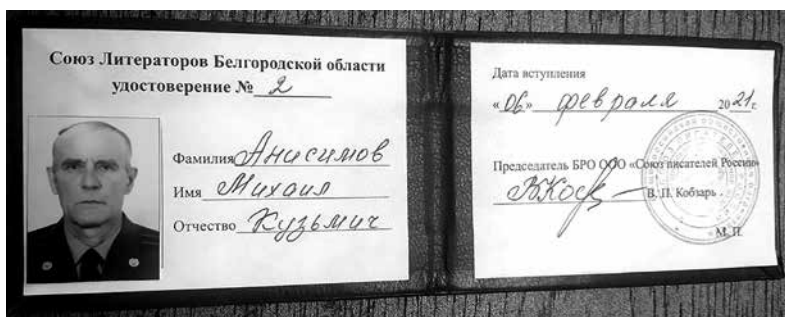 Союз Литераторов Белгородской области
удостоверение № 2
Фамилия Анисимов
Имя Михаил
Отчество Кузьмич
Дата вступления
«06» февраля 2021г.
Председатель БРО ООО «Союз писателей России»
В. П. Кобзарь
М. П.